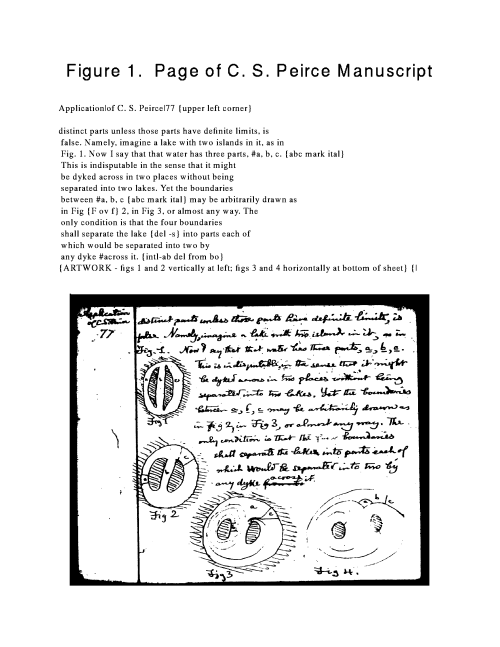 Figure 1. Page of C. S. Peirce Manuscript
Application|of C. S. Peirce|77 {upper left corner}
distinct parts unless those parts have definite limits, is
false. Namely, imagine a lake with two islands in it, as in
Fig. 1. Now I say that that water has three parts, #a, b, c. {abc mark ital}
This is indisputable in the sense that it might
be dyked across in two places without being
separated into two lakes. Yet the boundaries
between #a, b, c {abc mark ital} may be arbitrarily drawn as
in Fig {F ov f} 2, in Fig 3, or almost any way. The
only condition is that the four boundaries
shall separate the lake {del -s} into parts each of
which would be separated into two by
any dyke #across it. {intl-ab del from bo}
{ARTWORK - figs 1 and 2 vertically at left; figs 3 and 4 horizontally at bottom of sheet} {|
Application
of
77
distinct parts unless those parts have definite limits, is
false. Namely, imagine a lake with two islands in it, as in
Fig. 1. Now I say that that water has three parts, a, b, c.
This is indisputable in the sense that it might
be dyked across in two places without being
separated into two lakes. Yet the boundaries
between a, b, c may be arbitrarily drawn as
in Fig 2, in Fig 3, or almost any way. The
only condition is that the four boundaries
shall separate the lakes into parts each of
which would be separated into two by
any dyke across it.
Fig 1
Fig 2
a
c
b
c
Fig 3
Fig 4.